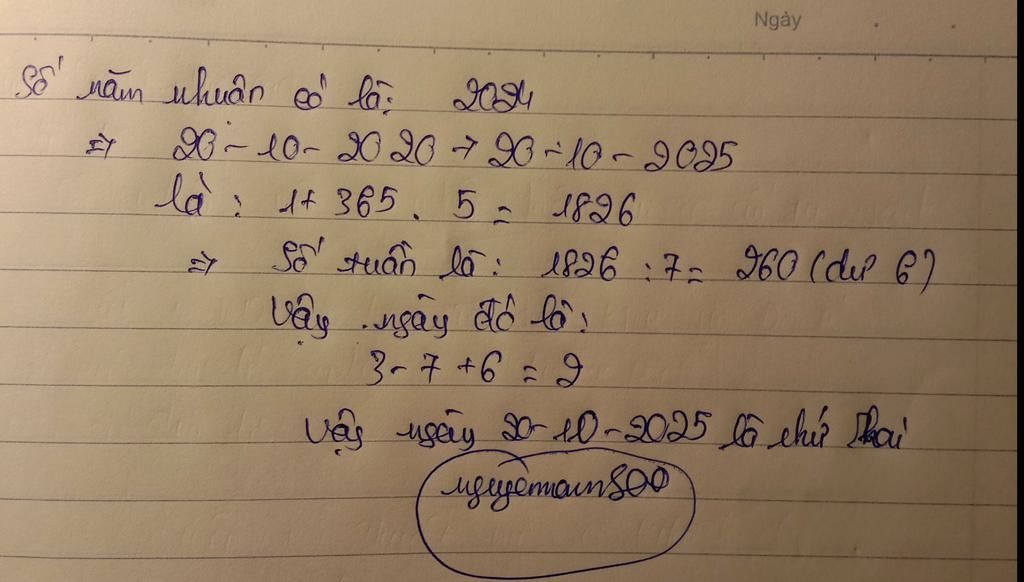 Ngày
Số năm nhuận có là: 2024
=> 20-10-2020 → 20-10-2025
là: 1+365.5=1826
=> Số tuần là: 1826:7=260 (dư 6)
Vậy ngày đó là:
3-7+6=2
Vậy ngày 20-10-2025 là thứ Hai